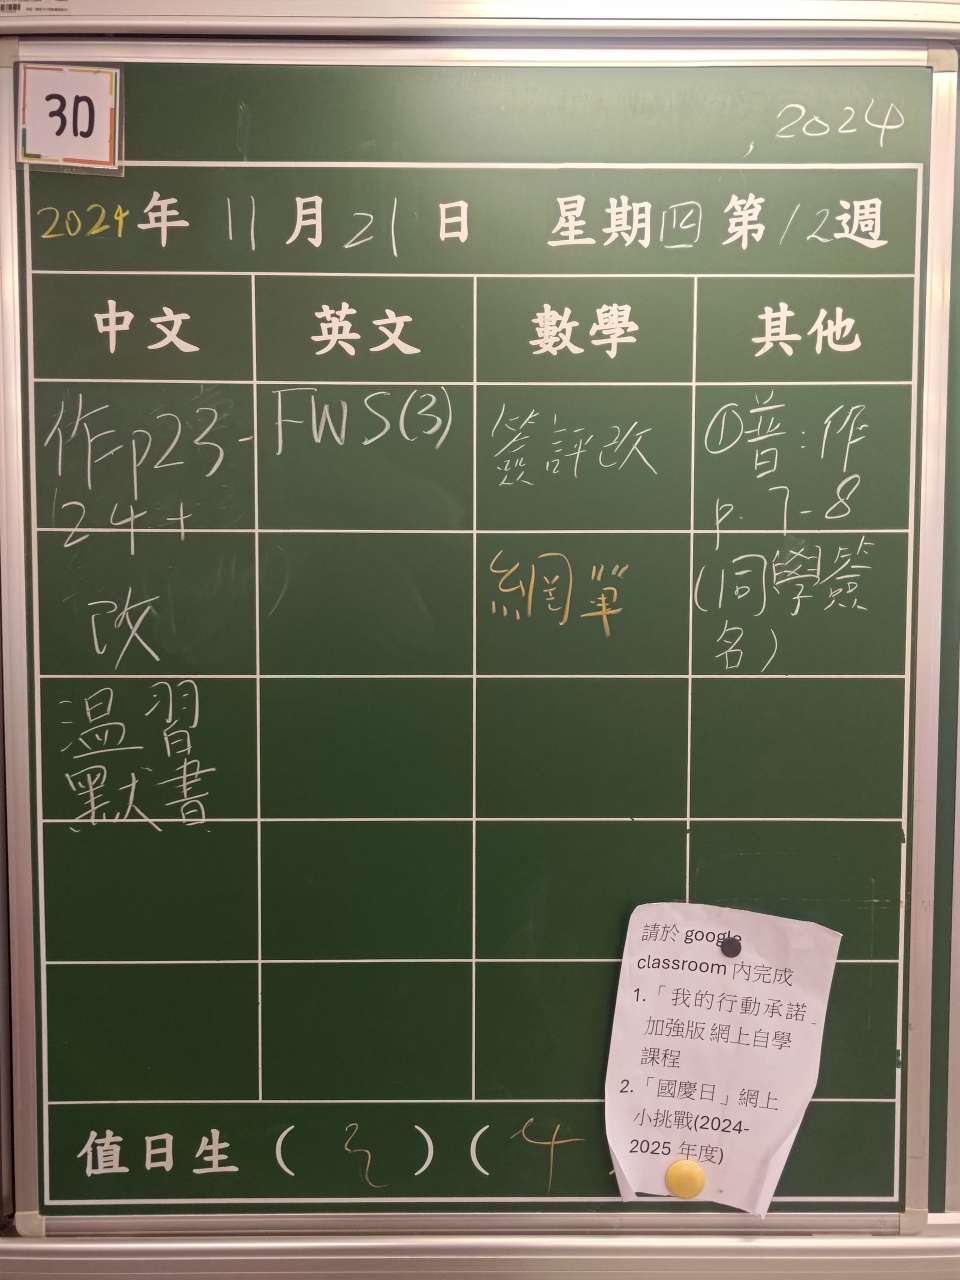 3D
, 2024
2024年 11月21日 星期四 第12週
中文 英文 數學 其他
作p23-
24+
改
溫習
默書
FWS(3)
簽評改
網單
①普:作
p.7-8
(同學簽
名)
請於 google
classroom 內完成
1.「我的行動承諾」
加強版 網上自學
課程
2.「國慶日」網上
小挑戰(2024-
2025 年度)
值日生 ( ) ( 4